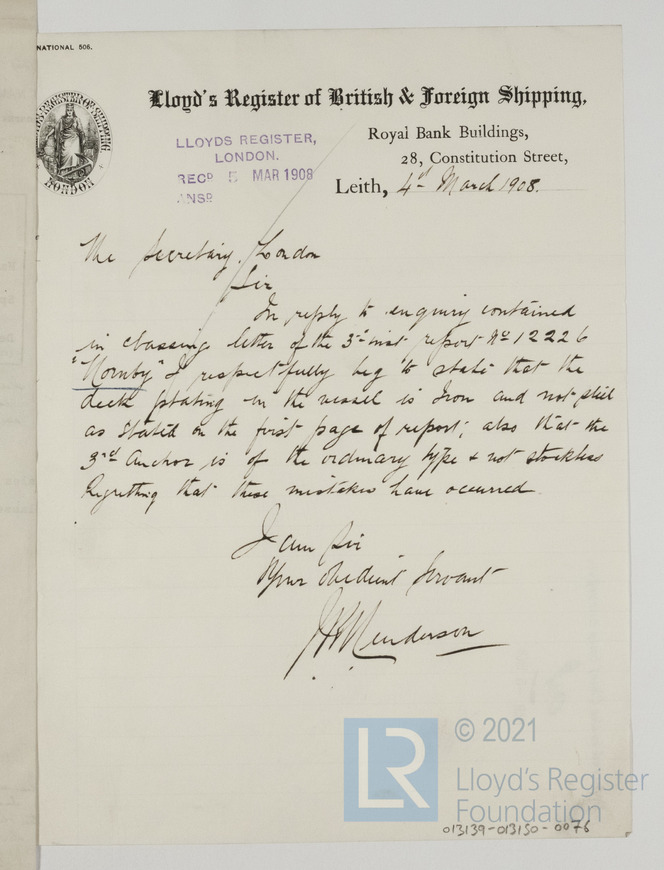 NATIONAL 506.
Lloyd's Register of British & Foreign Shipping,
Royal Bank Buildings,
28, Constitution Street,
LLOYDS REGISTER,
LONDON.
RECD 5 MAR 1908
ANSD
LONDON
Leith, 4th March 1908.
The Secretary, London
Sir
In reply to enquiry contained
in classing letter of the 3rd inst report No 12226
"Hornby" I respectfully beg to state that the
deck plating in the vessel is Iron and not steel
as stated on the first page of report; also that the
3rd Anchor is of the ordinary type & not stockless
Regretting that these mistakes have occurred.
I am Sir
Your obedient Servant
Henderson
LR
© 2021
Lloyd's Register
Foundation
013139-013150-0076